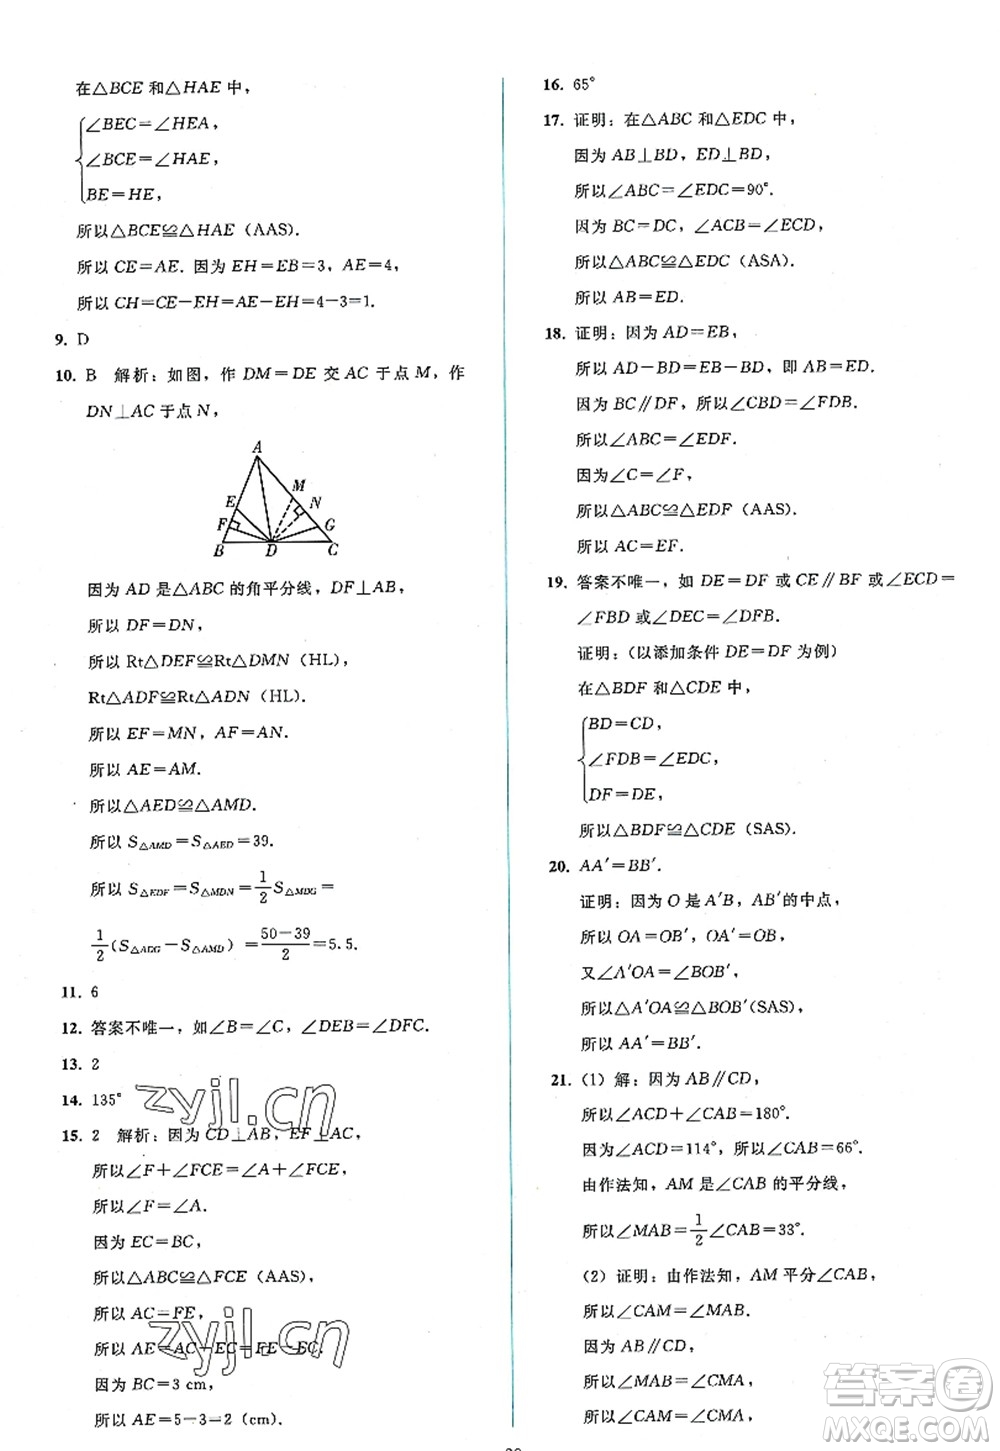 在△BCE 和△HAE 中，
∠BEC=∠HEA，
∠BCE=∠HAE，
BE=HE，
所以△BCE≌△HAE（AAS）.
所以 CE=AE. 因为 EH=EB=3，AE=4，
所以 CH=CE-EH=AE-EH=4-3=1.
9. D
10. B 解析：如图，作 DM=DE 交 AC 于点 M，作
DN⊥AC 于点 N，
A
M
E
N
F
G
B D C
因为 AD 是△ABC 的角平分线，DF⊥AB，
所以 DF=DN，
所以 Rt△DEF≌Rt△DMN（HL），
Rt△ADF≌Rt△ADN（HL）.
所以 EF=MN，AF=AN.
所以 AE=AM.
所以△AED≌△AMD.
所以 S△AMD=S△AED=39.
所以 S△EDF=S△MDN=1/2 S△MDG=
1/2(S△ADG-S△AMD)=(50-39)/2=5.5.
11. 6
12. 答案不唯一，如∠B=∠C，∠DEB=∠DFC.
13. 2
14. 135°
15. 2 解析：因为 CD⊥AB，EF⊥AC，
所以∠F+∠FCE=∠A+∠FCE，
所以∠F=∠A.
因为 EC=BC，
所以△ABC≌△FCE（AAS），
所以 AC=FE，
所以 AE=AC-EC=FE-EC.
因为 BC=3 cm，
所以 AE=5-3=2（cm）.
16. 65°
17. 证明：在△ABC 和△EDC 中，
因为 AB⊥BD，ED⊥BD，
所以∠ABC=∠EDC=90°.
因为 BC=DC，∠ACB=∠ECD，
所以△ABC≌△EDC（ASA）.
所以 AB=ED.
18. 证明：因为 AD=EB，
所以 AD-BD=EB-BD，即 AB=ED.
因为 BC∥DF，所以∠CBD=∠FDB.
所以∠ABC=∠EDF.
因为∠C=∠F，
所以△ABC≌△EDF（AAS）.
所以 AC=EF.
19. 答案不唯一，如 DE=DF 或 CE∥BF 或∠ECD=
∠FBD 或∠DEC=∠DFB.
证明：（以添加条件 DE=DF 为例）
在△BDF 和△CDE 中，
BD=CD，
∠FDB=∠EDC，
DF=DE，
所以△BDF≌△CDE（SAS）.
20. AA′=BB′.
证明：因为 O 是 A′B，AB′的中点，
所以 OA=OB′，OA′=OB，
又∠A′OA=∠BOB′，
所以△A′OA≌△BOB′(SAS)，
所以 AA′=BB′.
21.（1）解：因为 AB∥CD，
所以∠ACD+∠CAB=180°.
因为∠ACD=114°，所以∠CAB=66°.
由作法知，AM 是∠CAB 的平分线，
所以∠MAB=1/2∠CAB=33°.
（2）证明：由作法知，AM 平分∠CAB，
所以∠CAM=∠MAB.
因为 AB∥CD，
所以∠MAB=∠CMA，
所以∠CAM=∠CMA，
zyjl.cn
zyjl.cn
答案卷
MXQE.COM